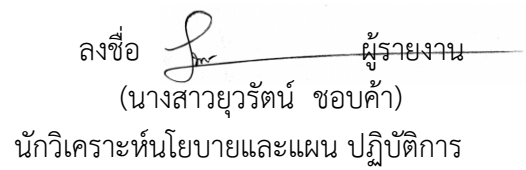 ลงชื่อ ผู้รายงาน
(นางสาวยุวรัตน์ ชอบค้า)
นักวิเคราะห์นโยบายและแผน ปฏิบัติการ